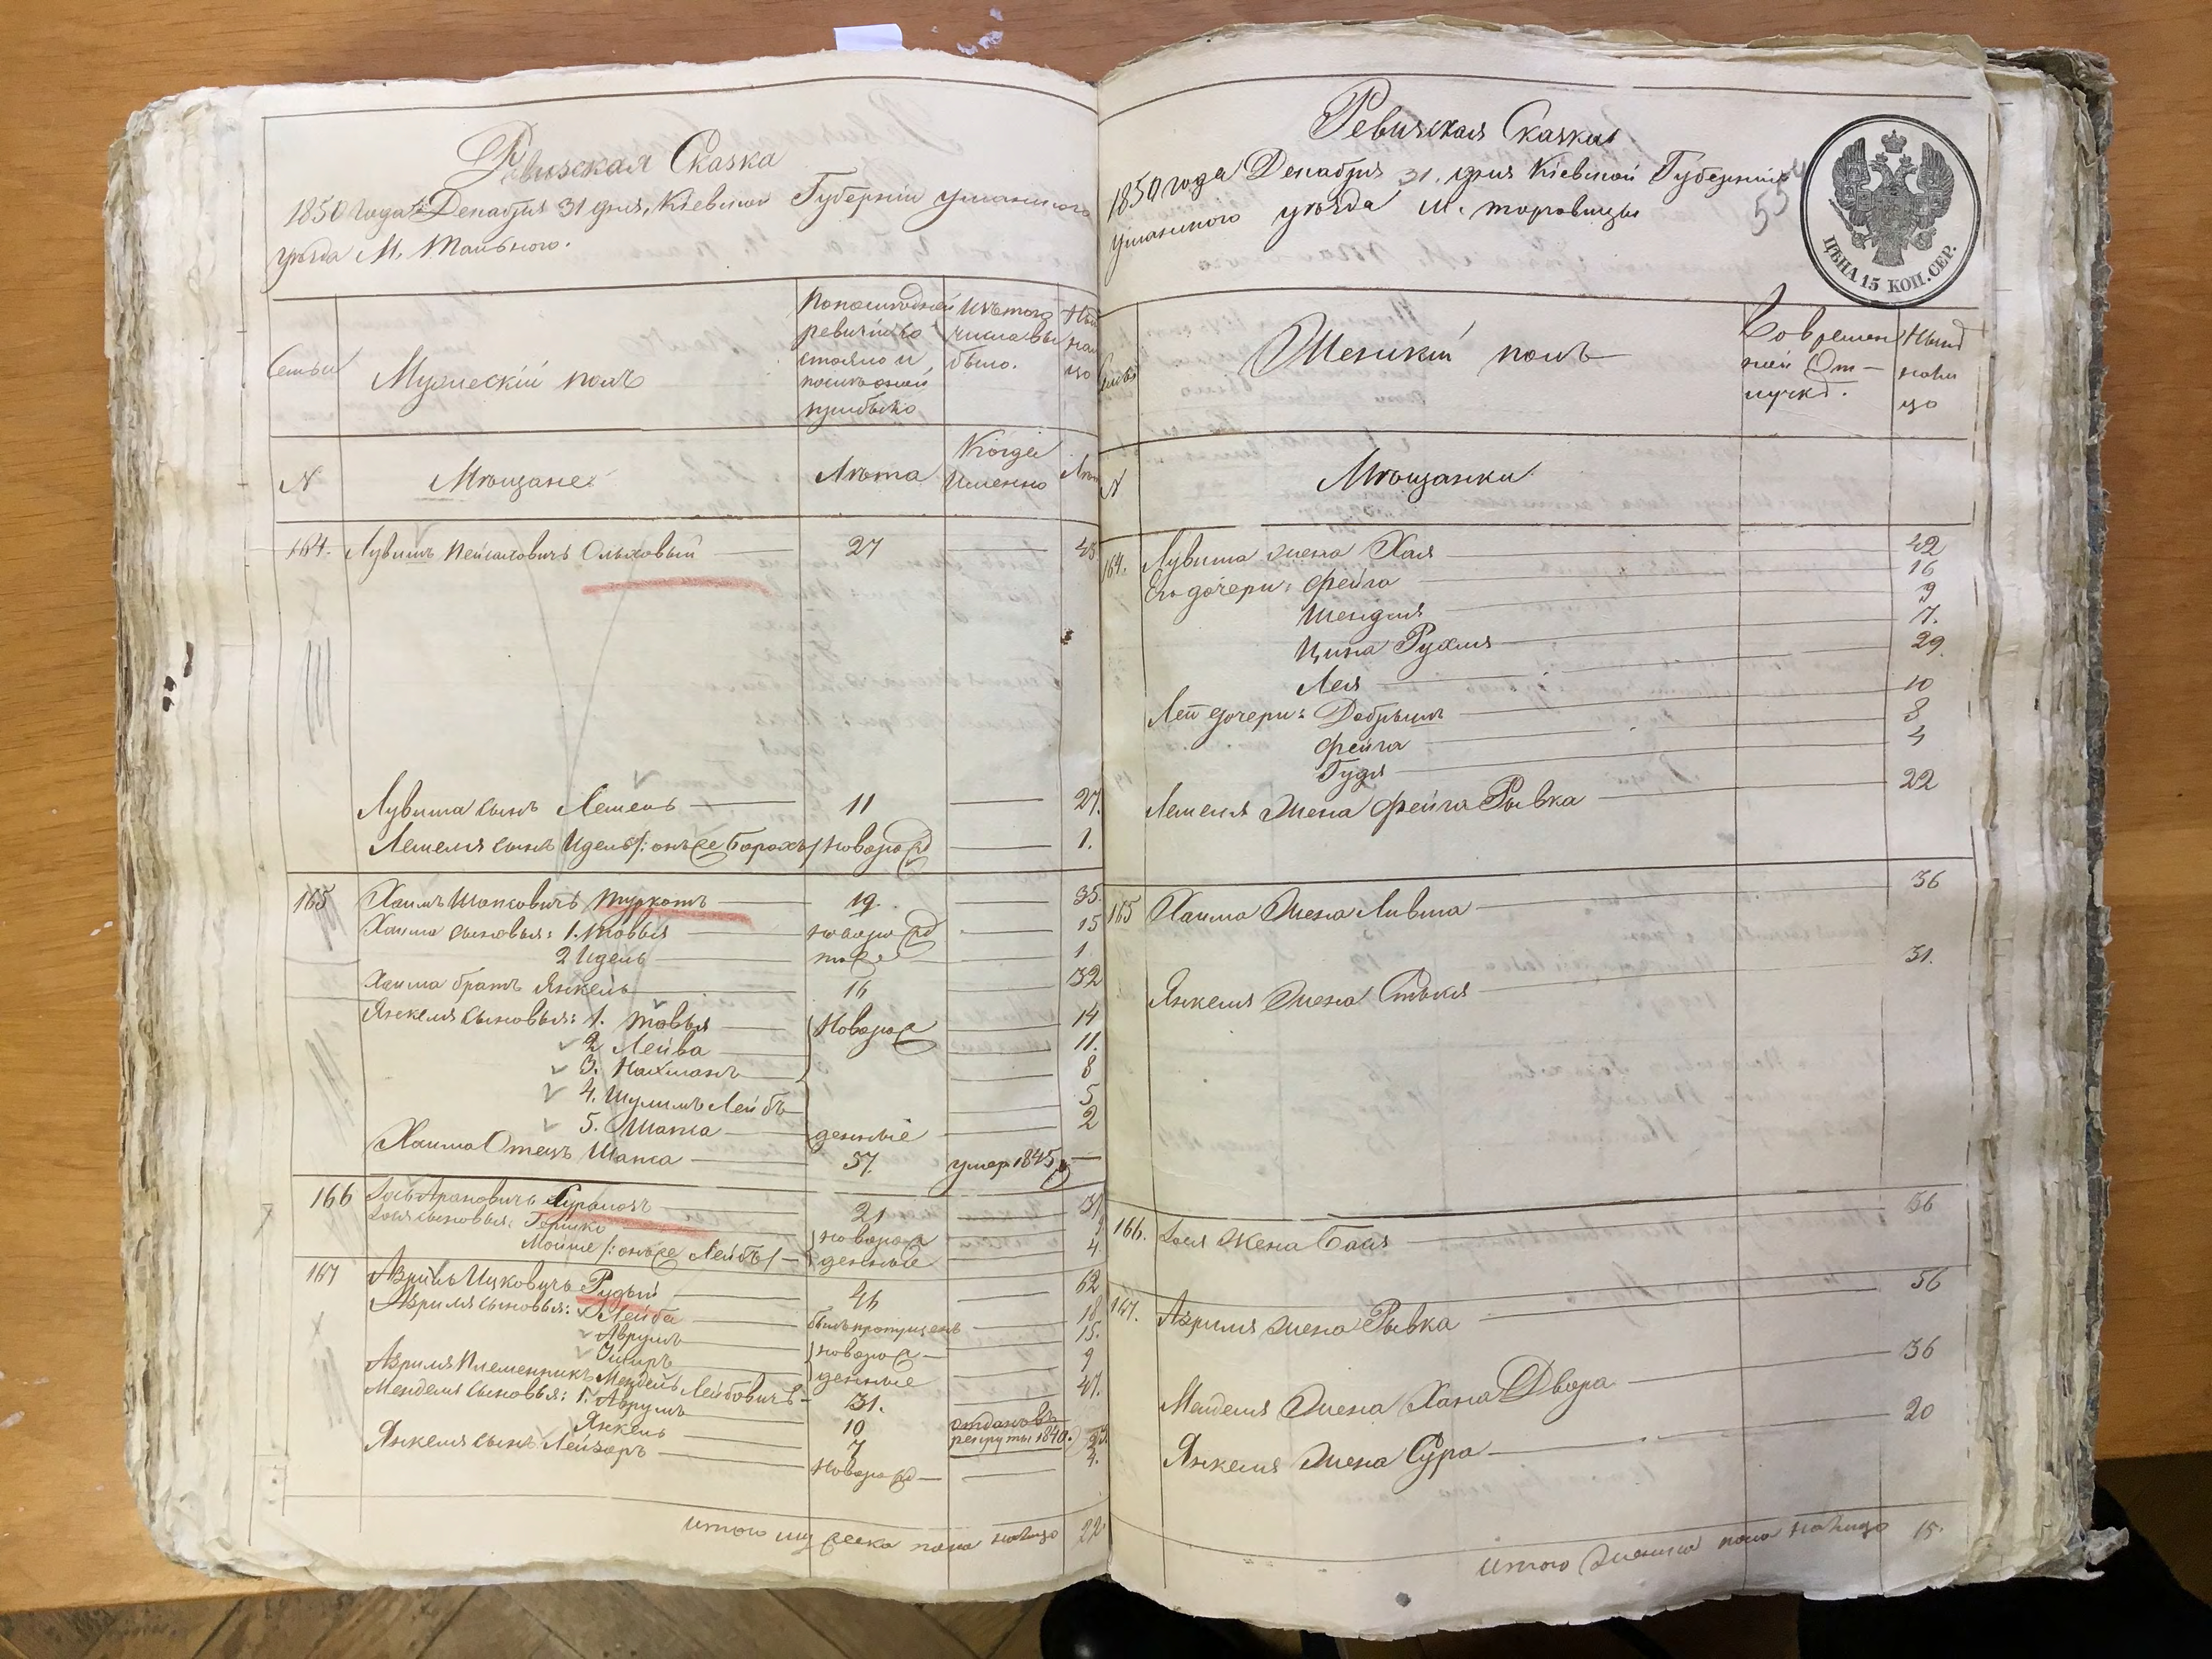 Ревизская Сказка
1850 года Декабря 31 дня, Кіевской Губерніи уманского
уезда М. Тального.
Семьи
Мужескій полъ
По последней
ревизіи
состояло и
после оной
прибыло
Изъ того
числа вы
было.
Ныне
нали
цо
N
Мещане
Лета
Когда
Именно
Лета
164. Лувишъ Пейсаховичъ Ольховый 27 45
Лувиша сынъ Лемель 11 27.
Лемеля сынъ Идель /: онъ же Борохъ / новорожд 1.
165 Хаимъ Шапсовичъ Турконъ 19. 35.
Хаима сыновья: 1. Товья новорожд 15
2 Идель тоже 1
Хаима братъ Янкель 16 32
Янкеля сыновья: 1. Товья Новорож 14
2 Лейба 11.
3. Нахманъ 8
4. Шулимъ Лейбъ 5
5. Шапса денные 2
Хаима Отецъ Шапса 57. умер. 1845
166 Іось Ароновичъ 21 31
Іося сыновья: Гершко новорож 9
Мойше /: онъ же Лейбъ / денные 4
167 Азриль Ицковичъ Рудый 46 62
Азриля сыновья: Лейба былъ пропущенъ 18
Аврумъ новорож 15.
денные 9
Азриля Племенникъ Мендель Лейбовичъ 31. 47.
Менделя сыновья: 1. Аврумъ 10 отданъ въ
рекруты 1840.
Янкель 7 23
Янкеля сынъ Лейзоръ Новорожд 4.
итого мужеска пола налицо 22
Ревизская Сказка
1850 года Декабря 31. дня Кіевской Губерніи
уманского уезда М. торговицы
55
ЦѢНА 15 КОП. СЕР.
Семьи
Женскій полъ
Во времен
ной От
лучкѣ.
Ныне
нали
цо
N
Мещанки
164. Лувиша жена Хая 42
Его дочери: Фейга 16
Шендля 9
Цина Рухля 7.
Лея 29.
Леи дочери: Добрышъ 10
Фейга 8
Гудя 4
Лемеля жена Фейга Рывка 22
165 Хаима жена Ливша 36
Янкеля жена Стыся 31.
166. Іося жена Бася 36
167. Азриля жена Рывка 56
Менделя жена Хана Двора 36
Янкеля жена Сура 20
итого женска пола налицо 15.